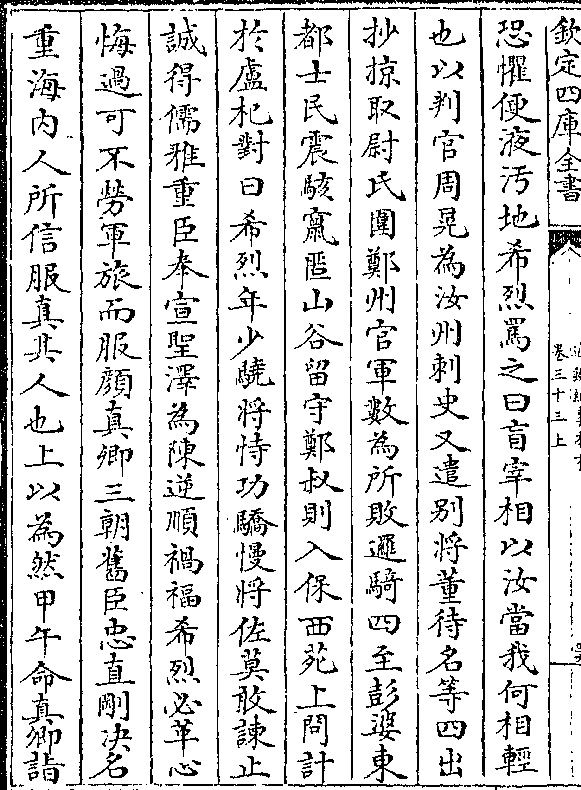 欽定四庫全書
卷三十三上
恐懼便液汚地希烈罵之曰盲宰相以汝當我何相輕
也以判官周晃為汝州刺史又遣别將董待名等四出
抄掠取尉氏圍鄭州官軍數為所敗邏騎四至彭婆東
都士民震駭竄匿山谷留守鄭叔則入保西苑上問計
於盧杞對曰希烈年少驍將恃功驕慢將佐莫敢諫止
誠得儒雅重臣奉宣聖澤為陳逆順禍福希烈必革心
悔過可不勞軍旅而服顔真卿三朝舊臣忠直剛决名
重海内人所信服真其人也上以為然甲午命真卿詣